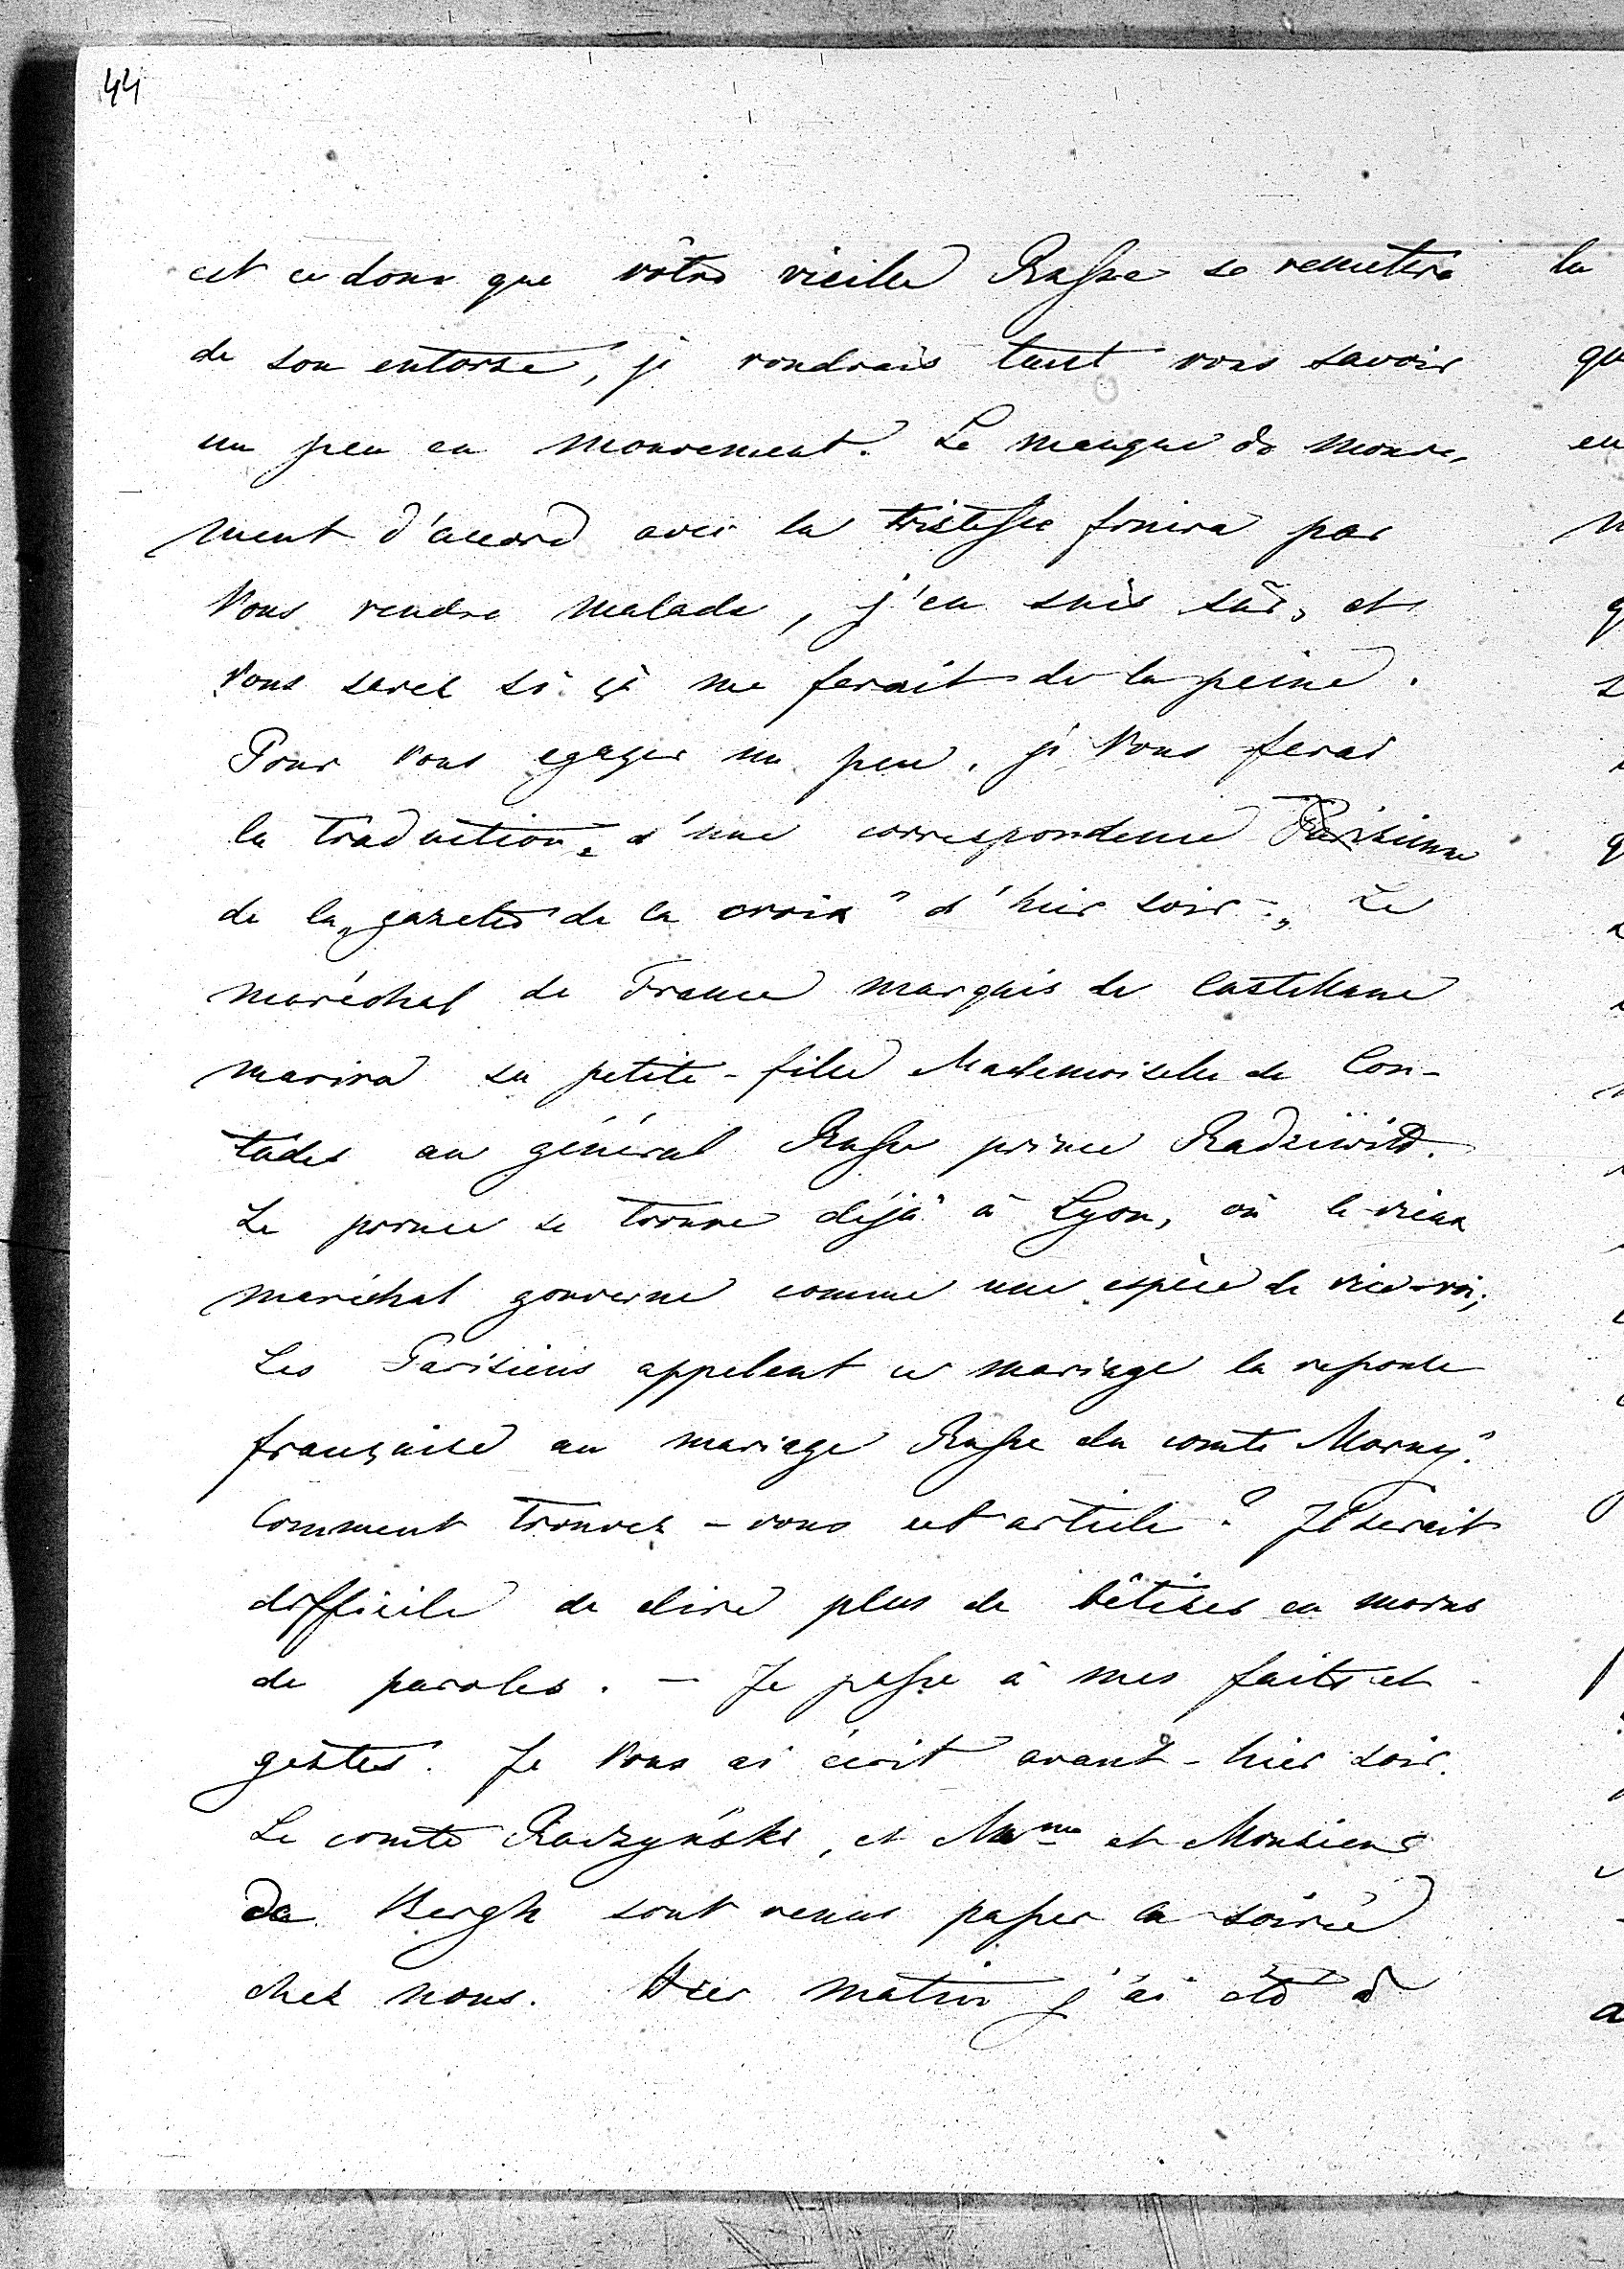 44
est ce donc que vôtre vieille Russe se remettra
de son entorse, je voudrais tant vous savoir
un peu en mouvement. Le manque de mouve,
ment d'accord avec la tristesse finira par
Vous rendre malade, j'en suis sûr, et
Vous savez si çà me ferait de la peine.
Pour Vous egayer un peu, je Vous ferai
la traduction d'une correspondence Parisienne
de la „gazette de la croix" d'hier soir: „Le
maréchal de France marquis de Castellane
marira sa petite-fille Mademoiselle de Con-
tades au général Russe prince Radziwill.
Le prince se trouve déjà à Lyon, où le vieux
maréchal gouverne comme une espèce de vice-roi;
Les Parisiens appelent ce mariage la reponse
française au mariage Russe du comte Morny."
Comment trouvez-vous cet article? Il serait
difficile de dire plus de bêtises en moins
de paroles. – Je passe à mes faits et
gestes. Je Vous ai écrit avant-hier soir.
Le comte Raczyński, et Mme et Monsieur
de Bergh sont venus passer la soirée
chez nous. Hier matin j'ai été à
la
qu
en
a